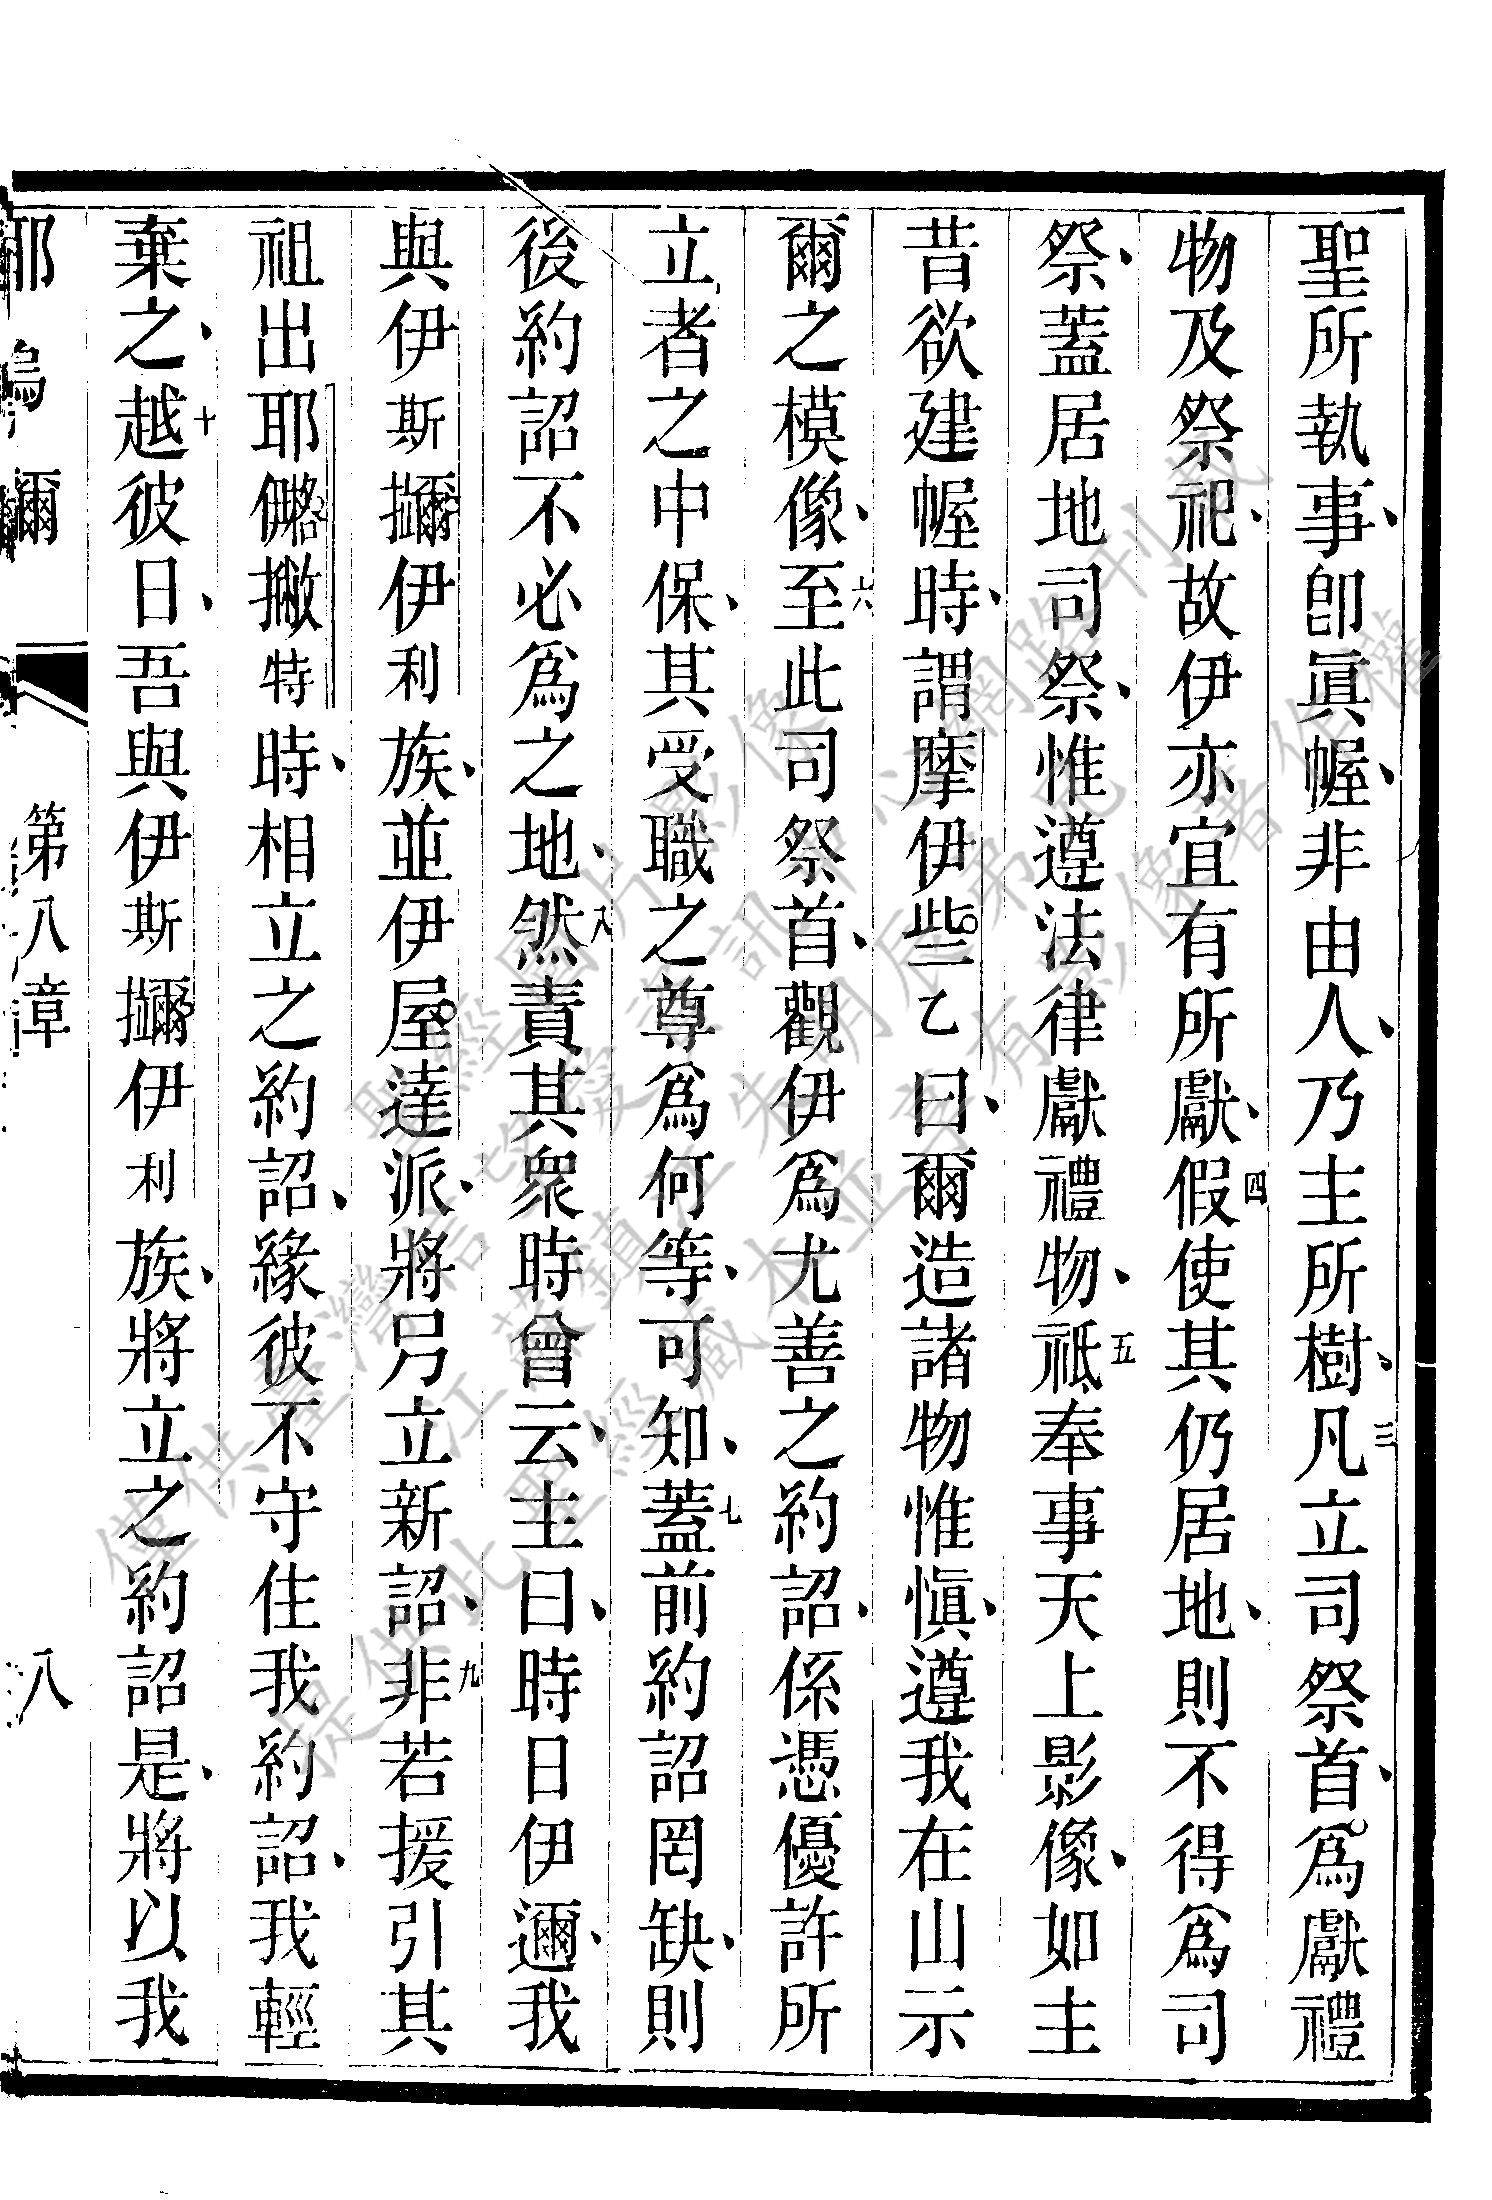 聖所執事、卽眞幄、非由人、乃主所樹、三凡立司祭首、爲獻禮
物及祭祀、故伊亦宜有所獻、四假使其仍居地、則不得爲司
祭、蓋居地司祭、惟遵法律獻禮物、五祗奉事天上影像、如主
昔欲建幄時、謂摩伊些乙曰、爾造諸物惟愼、遵我在山示
爾之模像、六至此司祭首、觀伊爲尤善之約詔、係憑優許所
立者之中保、其受職之尊爲何等、可知、七蓋前約詔罔缺、則
後約詔不必爲之地、八然責其衆時曾云、主曰、時日伊邇、我
與伊斯擟伊利族、並伊屋達派、將另立新詔、九非若援引其
祖出耶撇特時、相立之約詔、緣彼不守住我約詔、我輕
棄之、十越彼日、吾與伊斯擟伊利族、將立之約詔是、將以我
第八章
八